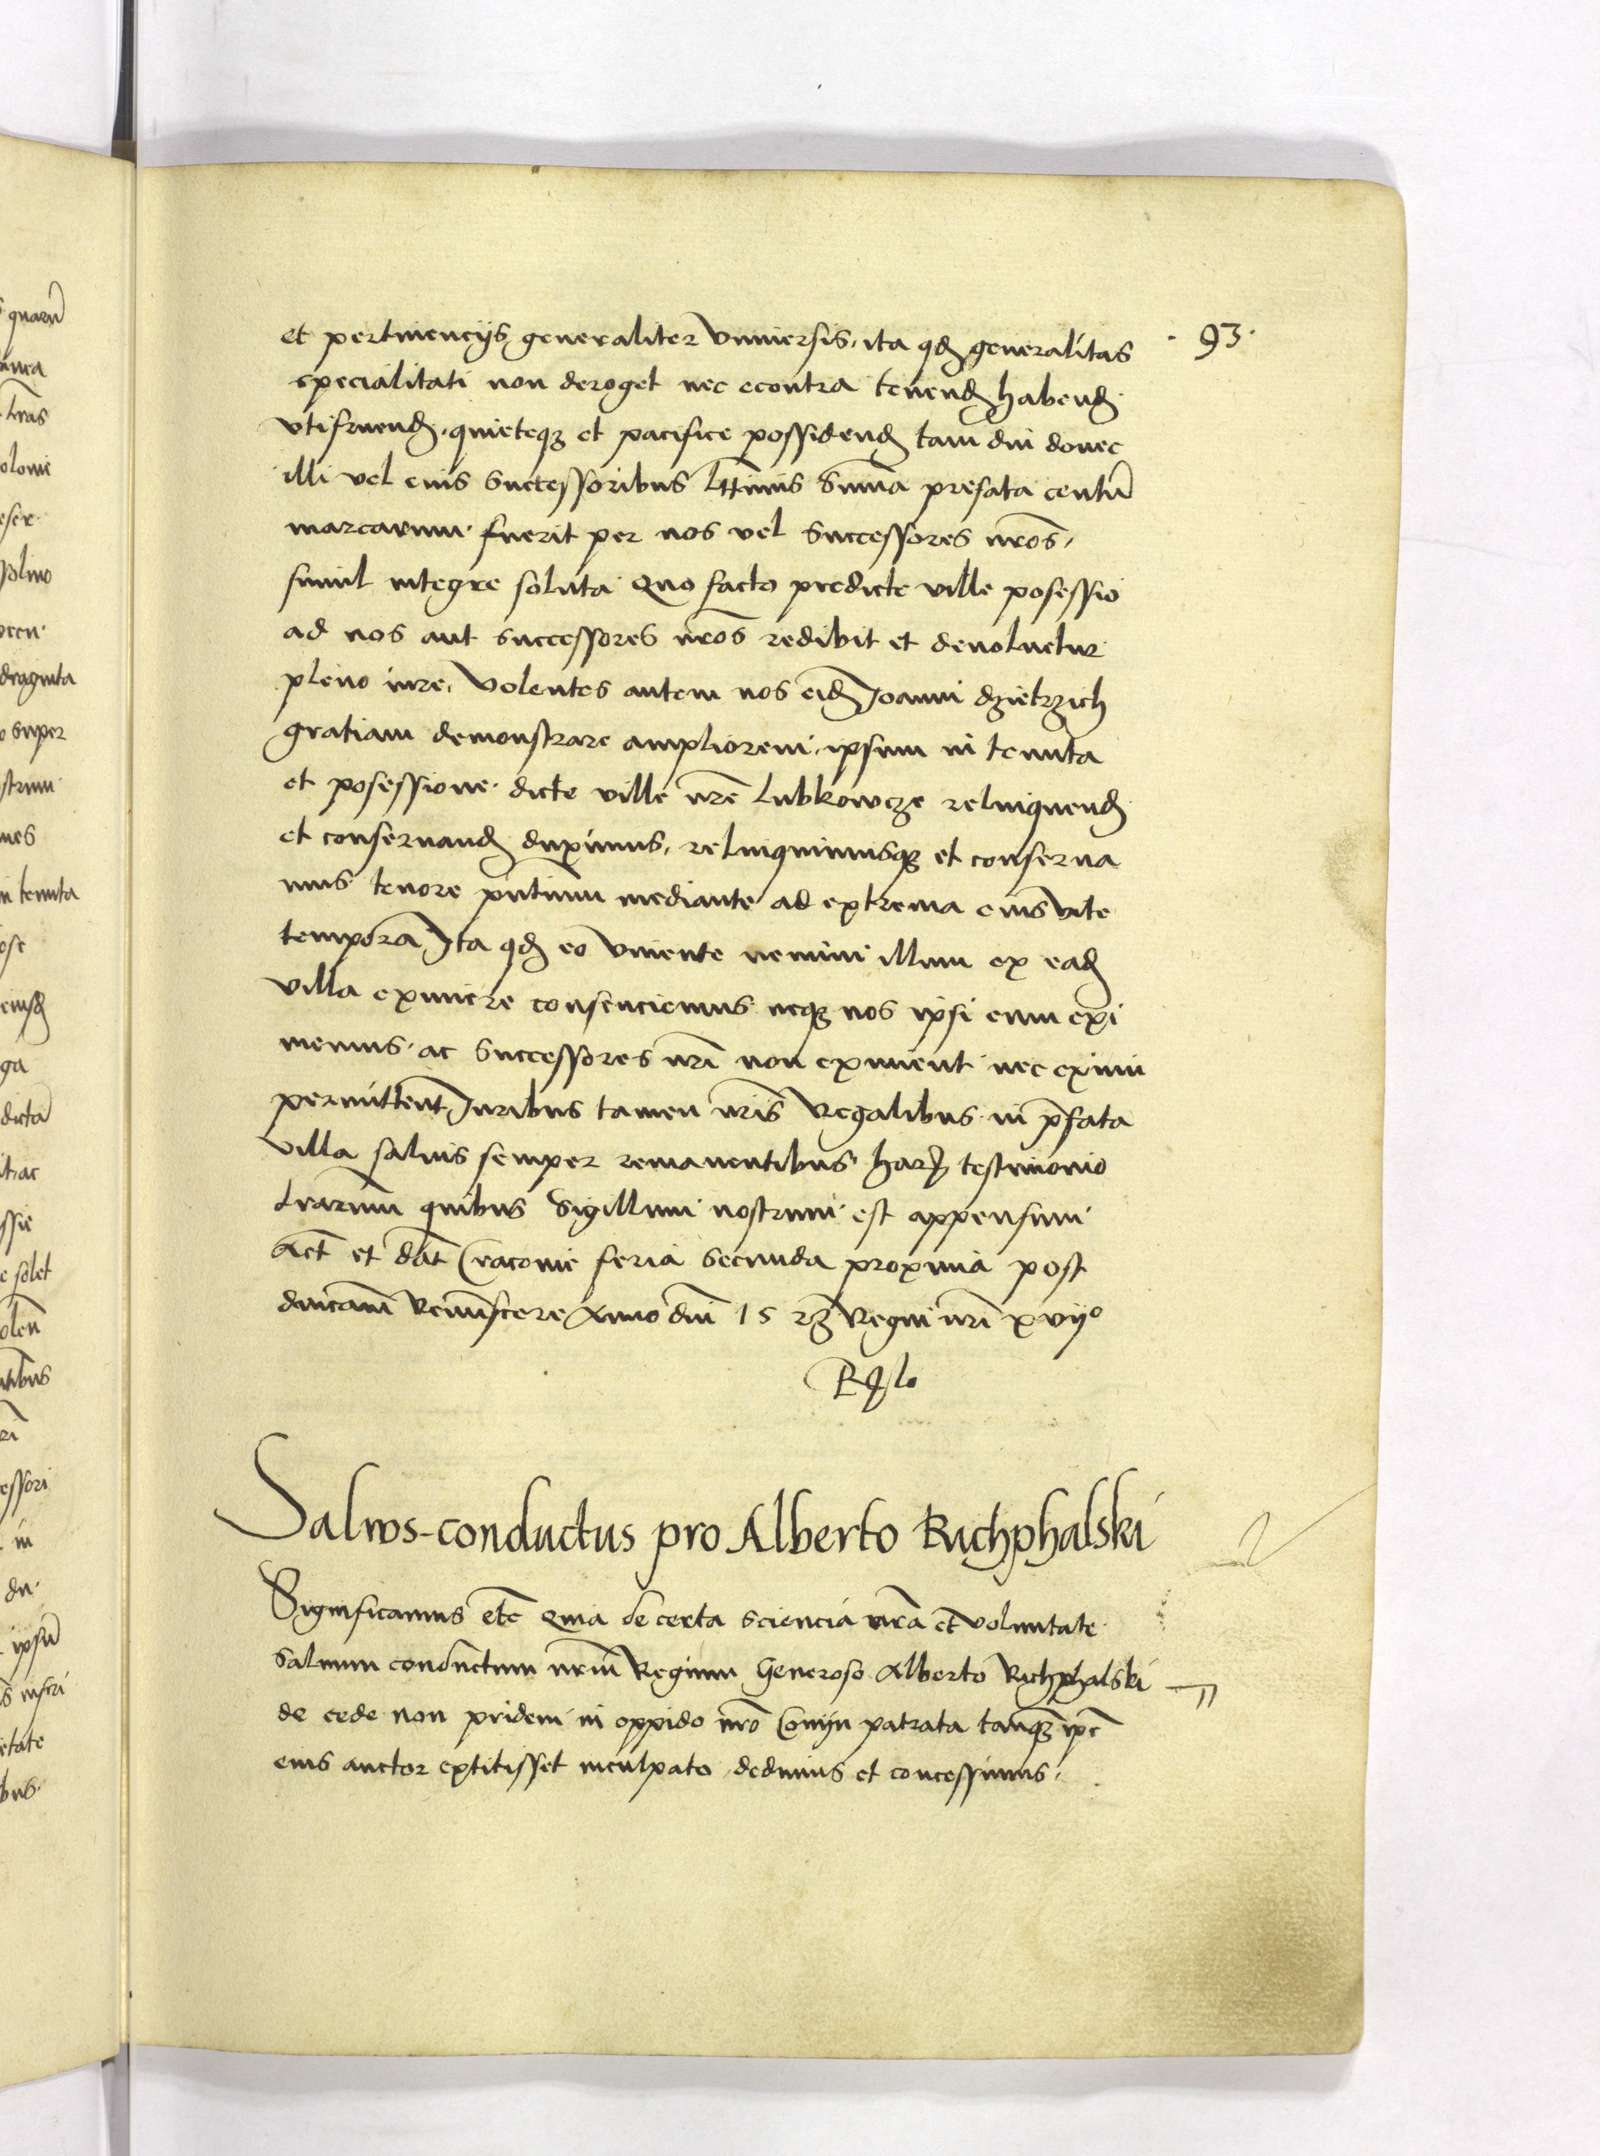 93.
et pertinencijs generaliter vniuersis, ita qd generalitas
specialitati non deroget nec econtra tenend habend
vtifruend, quieteqz et pacifice possidend tam diu donec
illi vel eius successoribus lttimis suma prefata centu
marcarum fuerit per nos vel successores nros,
simul integre soluta Quo facto predicte ville posessio
ad nos aut successores nros redibit et deuoluetur
pleno iure, Volentes autem nos eid Joanni dzietrzich
gratiam demonstrare ampliorem, ipsum in tenuta
et posessione dicte ville nre Lubkowcze relinquend
et conseruand duximus, relinquimusqz et conserua
mus tenore pntium mediante ad extrema eius vite
tempora Ita qd eo viuente nemini illum ex ead
villa eximere consenciemus neqz nos ipsi eum exi
memus ac successores nri non eximent nec eximi
permittent Juribus tamen nris Regalibus in pfata
villa saluis semper remanentibus harz testimonio
lrarum quibus Sigillum nostrum est appensum
Act et dat Cracouie feria secunda proxima post
dnicam Reminiscere Anno dni 1523 Regni nri xvijo
Salvos-conductus pro Alberto Richphalski
Significamus etc Quia de certa sciencia nra et voluntate
Saluum conductum nrum Regium Generoso Alberto Richphalski
de cede non pridem in oppido nro Conijn patrata tanqz ipse
eius auctor extitisset inculpato, dedimus et concessimus,